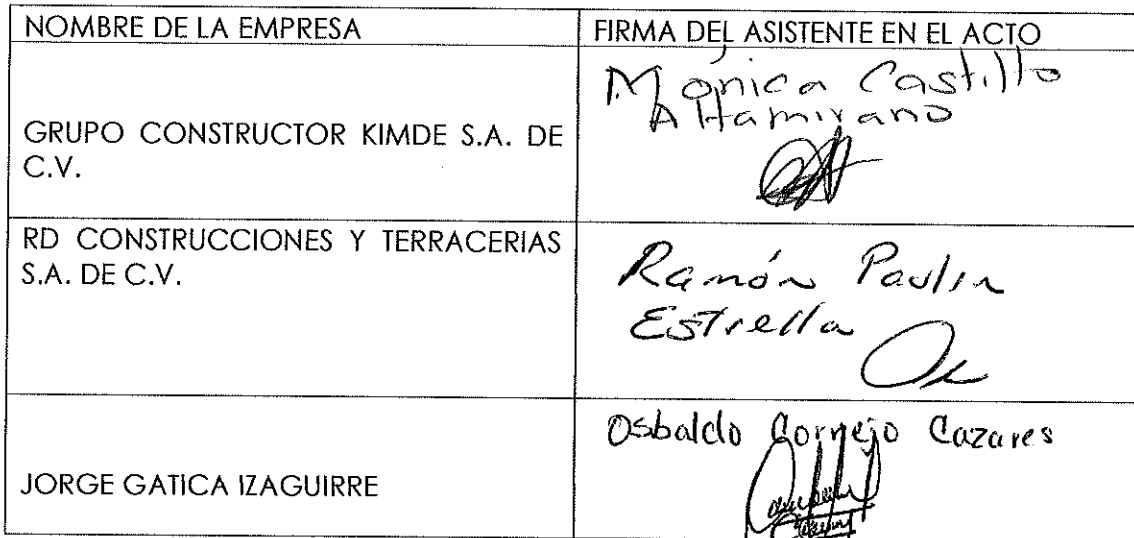 NOMBRE DE LA EMPRESA
FIRMA DEL ASISTENTE EN EL ACTO
GRUPO CONSTRUCTOR KIMDE S.A. DE
C.V.
Mónica Castillo
Altamirano
RD CONSTRUCCIONES Y TERRACERIAS
S.A. DE C.V.
Ramón Paulin
Estrella
JORGE GATICA IZAGUIRRE
Osbaldo Cornejo Cazares